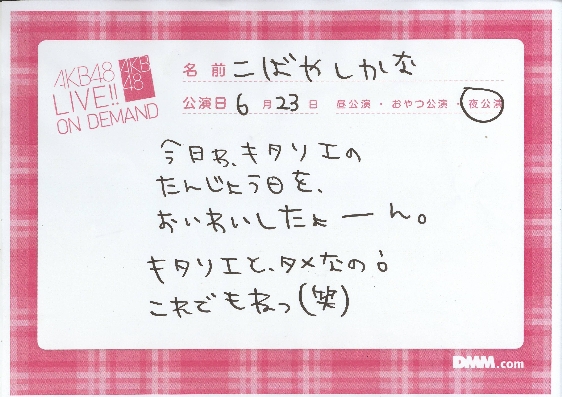 AKB48
LIVE!!
ON DEMAND
AKB
48
名前 こばやしかな
公演日 6月23日 昼公演・おやつ公演・夜公演
今日わ、キタリエの
たんじょう日を、
おいわいしたょーん。
キタリエと、タメなの。
これでもねっ(笑)
DMM.com